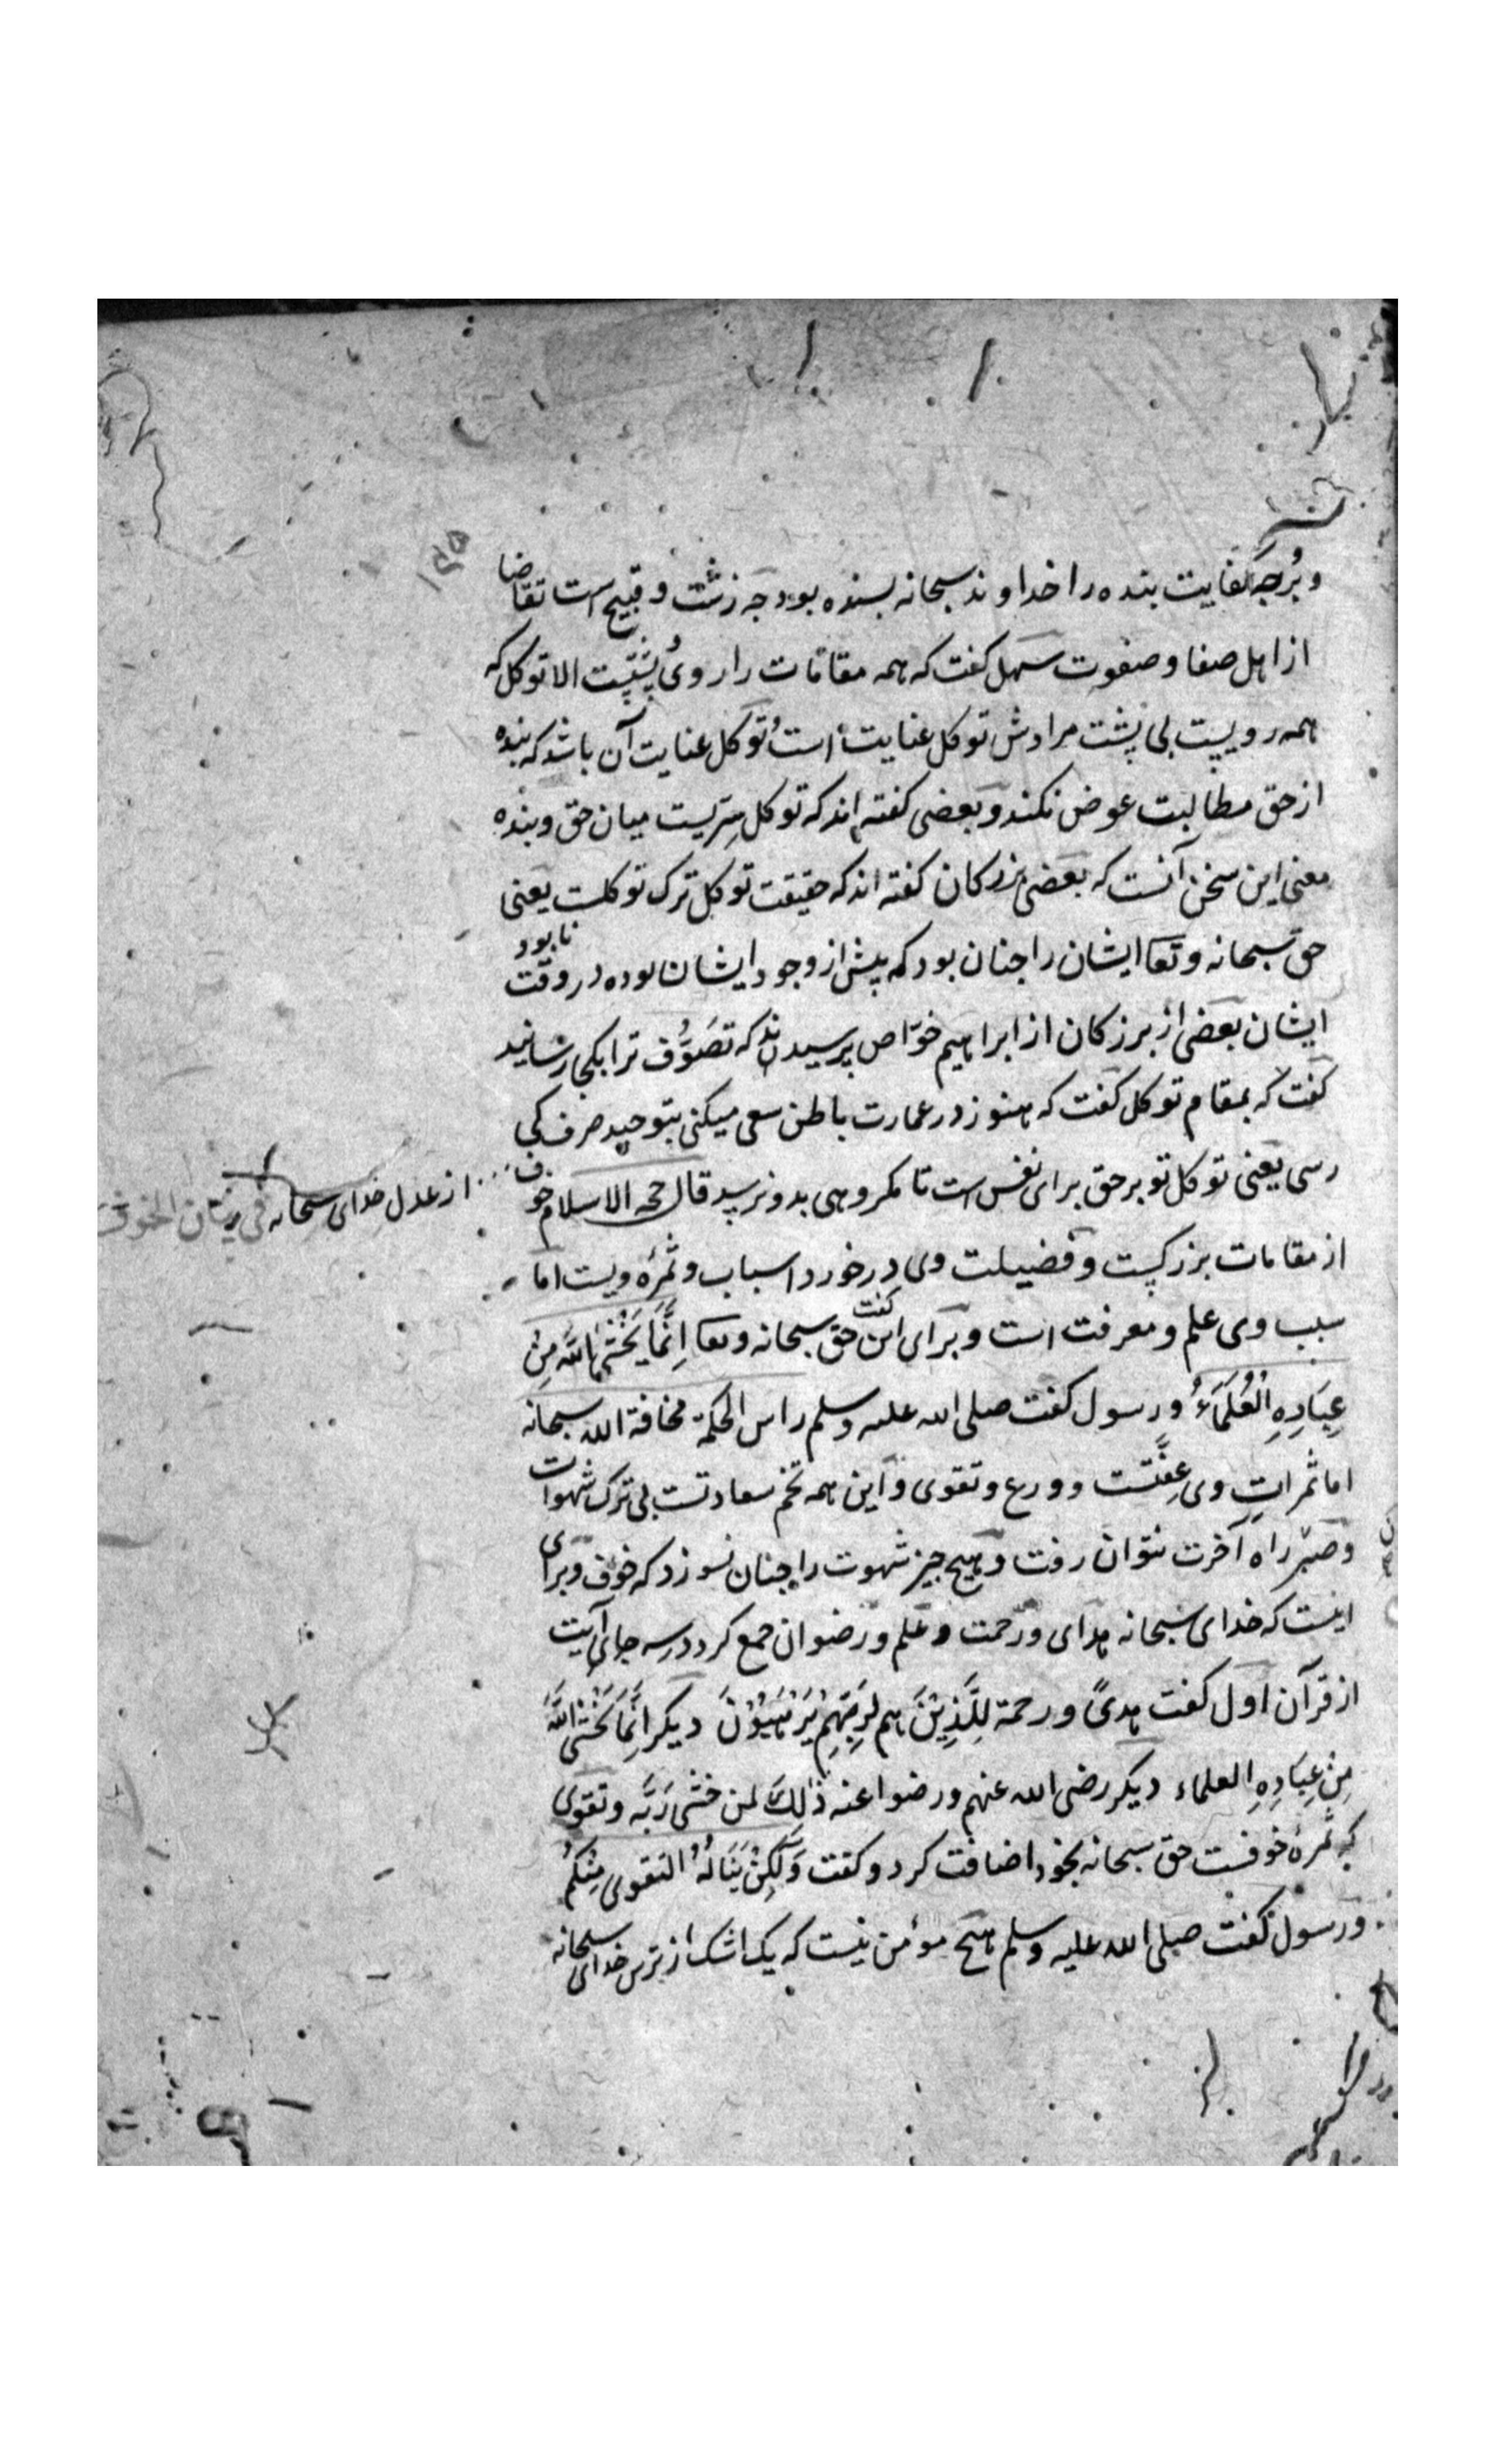 ۱۳۵
و بُرجَه کفایت بنده را خداوند سبحانه بسنده بود چه زشت و قبیح است تقاضا
از اهل صفا و صفوت سهل کفت که همه مقامات را روی پشتیست الا توکل که
همه رویست بی پشت مرادش توکل عنایت است توکل عنایت آن باشد که بنده
از حق مطالبت عوض نکند و بعضی کفته اند که توکل سِرّیست میان حق و بنده
معنی این سخن آنست که بعضی بزرکان کفته اند که حقیقت توکل ترک توکلست یعنی
حق سبحانه و تعا ایشان را جنان بود که پیش از وجود ایشان بوده در وقت نابود
ایشان بعضی از بزرکان از ابراهیم خوّاص پرسیدند که تَصَوُّف ترا بکجا رسانید
کفت که بمقام توکل کفت که هنوز در عمارت باطن سعی میکنی بتوحید صرف کی
رسی یعنی توکل تو بر حق برای نفس است تا مکروهی بدو نرسد قال حجه الاسلام خوف
از عدل خدای سبحانه فی بیان الخوف
از مقامات بزرکست و فضیلت وی درخورد اسباب و ثمره ویست اما
سبب وی علم و معرفت است و برای این کفت حق سبحانه و تعا اِنَّمَا یَخْشَی اللَّهَ مِنْ
عِبَادِهِ الْعُلَمَاءُ و رسول کفت صلی الله علیه وسلم راس الحکمة مخافة الله سبحانه
اما ثمراتِ وی عِفّتست و ورع و تقوی و این همه تخم سعادتست بی ترک شهوات
و صبر راه آخرت نتوان رفت و هیچ جیز شهوت را جنان نسوزد که خوف و برای
اینست که خدای سبحانه هدای و رحمت و علم و رضوان جمع کرد در سه جای آیت
از قرآن اول کفت هدیً و رحمة لِلَّذِیْنَ هم لِرَبِّهِمْ یَرْهَبُوْنَ دیکر اِنَّمَا یَخْشَی اللَّهَ
مِنْ عِبَادِهِ العلماء دیکر رضی الله عنهم و رضوا عنه ذٰلِکَ لمن خشی رَبَّه و تقوی
که ثمرهٔ خوفست حق سبحانه بخود اضافت کرد و کفت وَلٰکِنْ یَنَالُهُ التقوی مِنْکُمْ
و رسول کفت صلی الله علیه وسلم هیچ مؤمن نیست که یک اشک از ترس خدای سبحانه